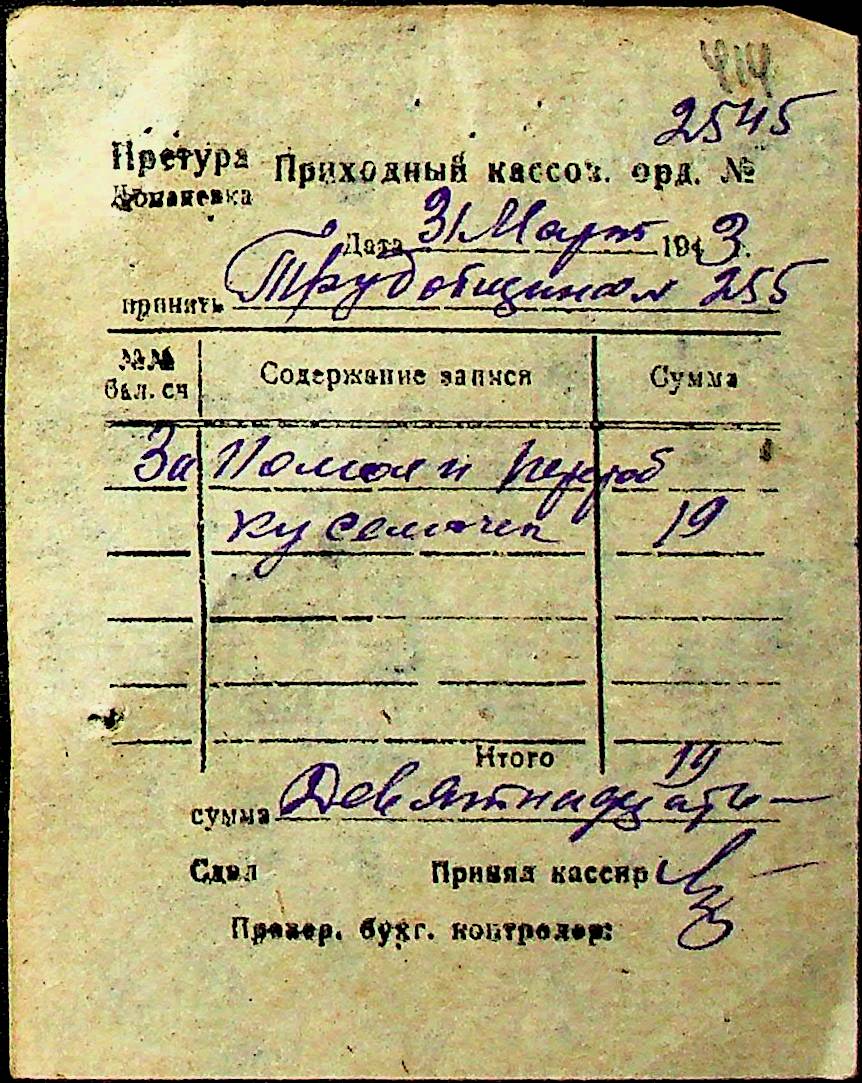 414
2545
Претура Приходный кассов. орд. №
Доманевка
Дата 31 Март 1943.
принять Трудобщиная 255
№№ бал. сч Содержание записи Сумма
За Помол и перераб
ку семечек 19
Итого 19
сумма Девятнадцать —
Сдал Принял кассир
Провер. бухг. контролер: